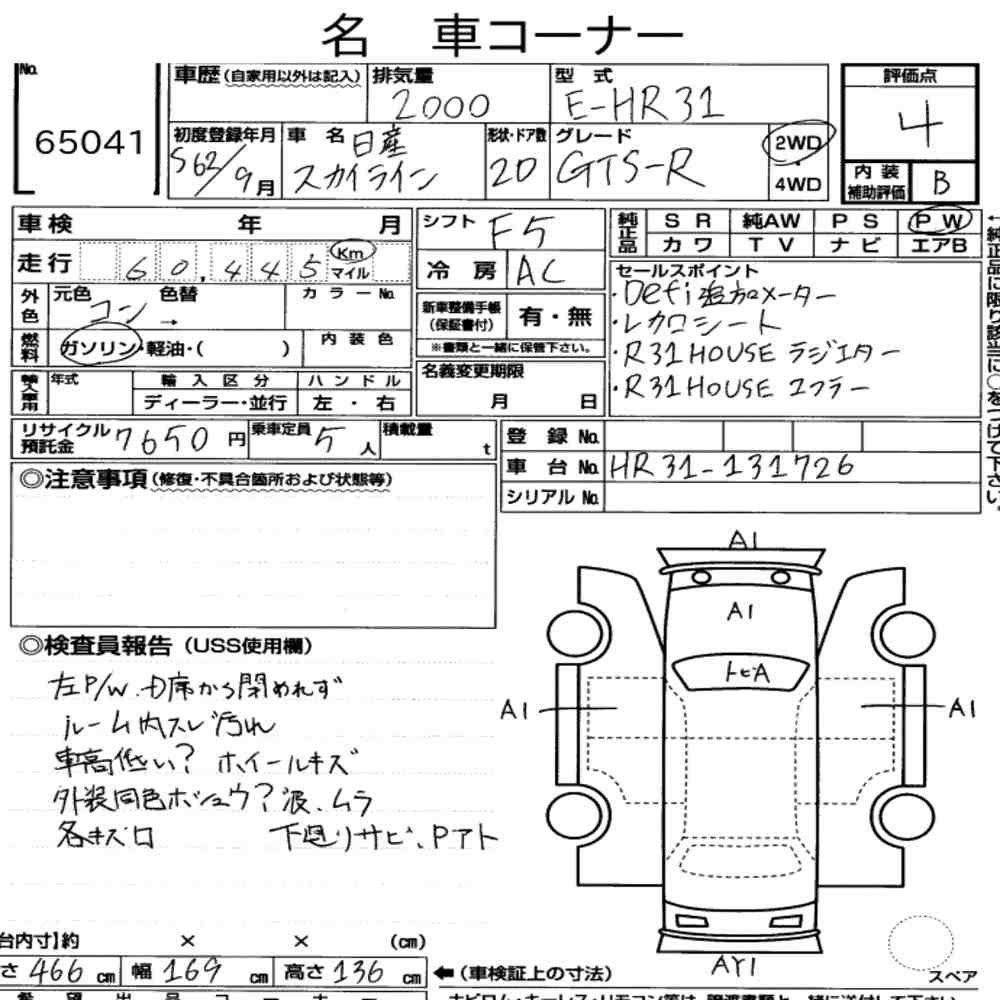 名 車コーナー
No.
65041
車歴(自家用以外は記入)
排気量
2000
型 式
E-HR31
評価点
4
初度登録年月
S62/9月
車 名
日産
スカイライン
形状・ドア数
2D
グレード
GTS-R
2WD
・
4WD
内 装
補助評価
B
車検 年 月
シフト
F5
純正品
SR 純AW PS PW
カワ TV ナビ エアB
走行
60,445
Km
マイル
冷 房
AC
セールスポイント
・Defi追加メーター
・レカロシート
・R31HOUSE ラジエター
・R31HOUSE マフラー
外色
元色
コン
→
色替
カラーNo.
新車整備手帳
(保証書付)
有・無
※書類と一緒に保管下さい。
燃料
ガソリン・軽油・( )
内装色
名義変更期限
月 日
輸入車用
年式
輸入区分
ディーラー・並行
ハンドル
左・右
リサイクル
預託金
7650円
乗車定員
5人
積載量
t
登 録 No.
車 台 No.
HR31-131726
シリアル No.
←純正品に限り該当に○をつけて下さい。
◎注意事項(修復・不具合箇所および状態等)
◎検査員報告(USS使用欄)
左P/W D席から閉めれず
ルーム内スレ汚れ
車高低い? ホイールキズ
外装同色ホシュウ?波、ムラ
各キズ凹
下廻りサビ、Pアト
A1
A1
トビA
A1
A1
AY1
スペア
台内寸】約 × × (cm)
さ 466 cm
幅 169 cm
高さ 136 cm
←(車検証上の寸法)
希望出品コーナー